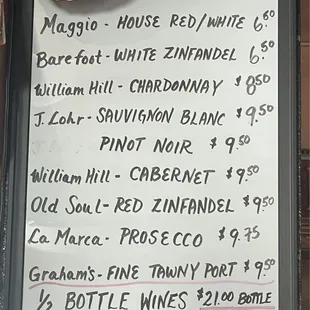 Maggio - HOUSE RED/WHITE 6.50
Barefoot - WHITE ZINFANDEL 6.50
William Hill - CHARDONNAY $8.50
J. Lohr - SAUVIGNON BLANC $9.50
PINOT NOIR $9.50
William Hill - CABERNET $9.50
Old Soul - RED ZINFANDEL $9.50
La Marca - PROSECCO $9.75
Graham's - FINE TAWNY PORT $9.50
1/2 BOTTLE WINES $21.00 BOTTLE